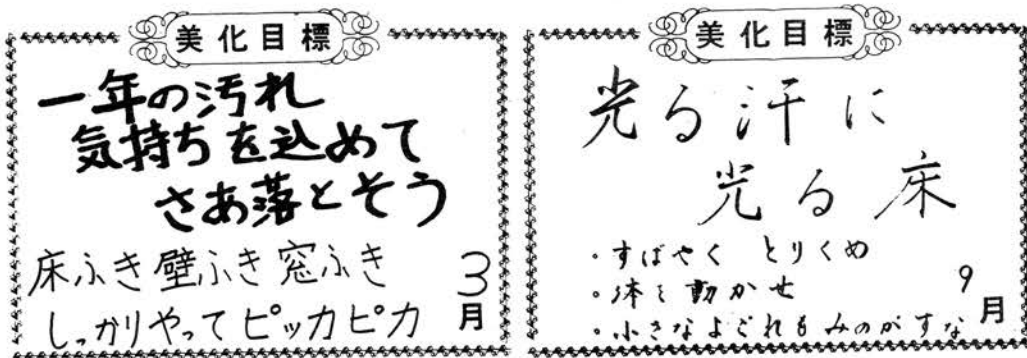 美化目標
一年の汚れ
気持ちを込めて
さあ落とそう
床ふき壁ふき窓ふき
しっかりやってピッカピカ
3月
美化目標
光る汗に
光る床
・すばやく とりくめ
・体を動かせ
・小さなよごれもみのがすな
9月